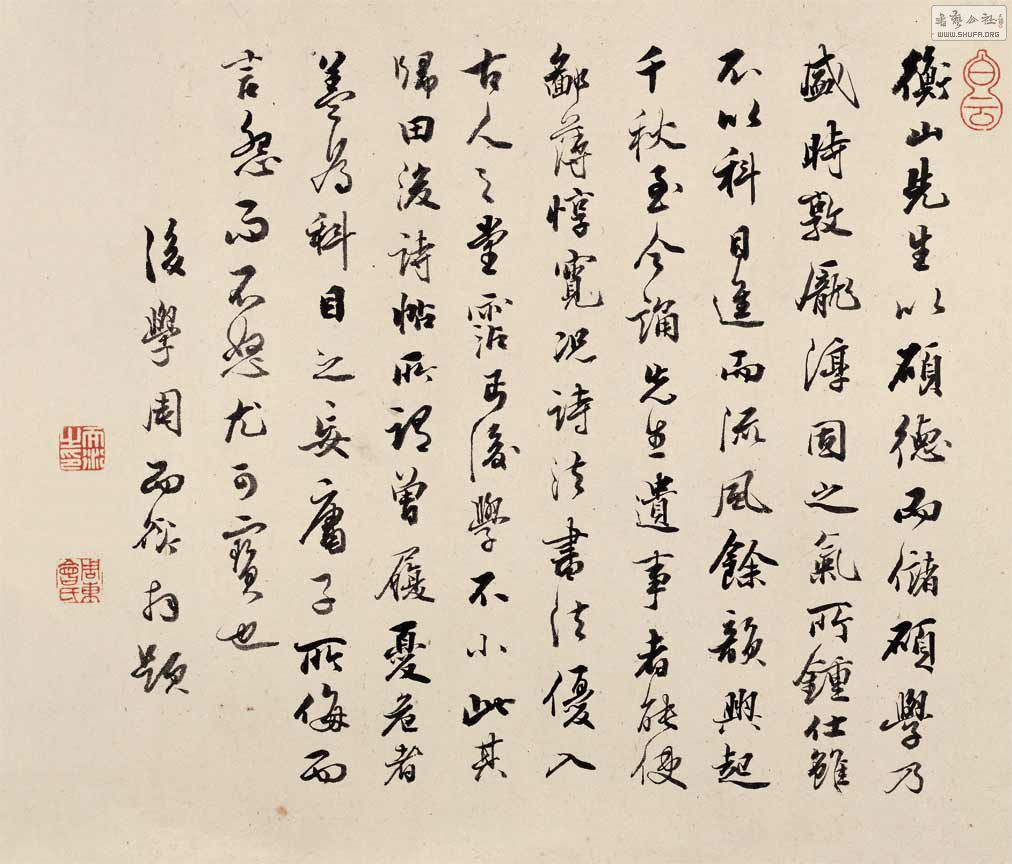 衡山先生以碩德而儲碩學乃
盛時敦龐渟固之氣所鍾仕雖
不以科目進而流風餘韻興起
千秋至今誦先生遺事者能使
鄙薄惇寬況詩法書法優入
古人之堂霑丐後學不小此其
歸田後詩帖所謂曾履憂危者
蓋為科目之妄庸子所侮而
言怨而不怒尤可寶也
後學周而衍拜題
白云
周東會氏
WWW.SHUFA.ORG